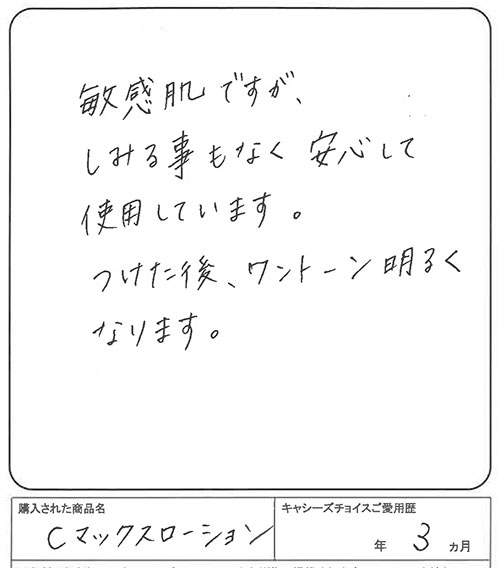 敏感肌ですが、
しみる事もなく 安心して
使用しています。
つけた後、ワントーン明るく
なります。
購入された商品名
Cマックスローション
キャシーズチョイスご愛用歴
年 3 ヵ月